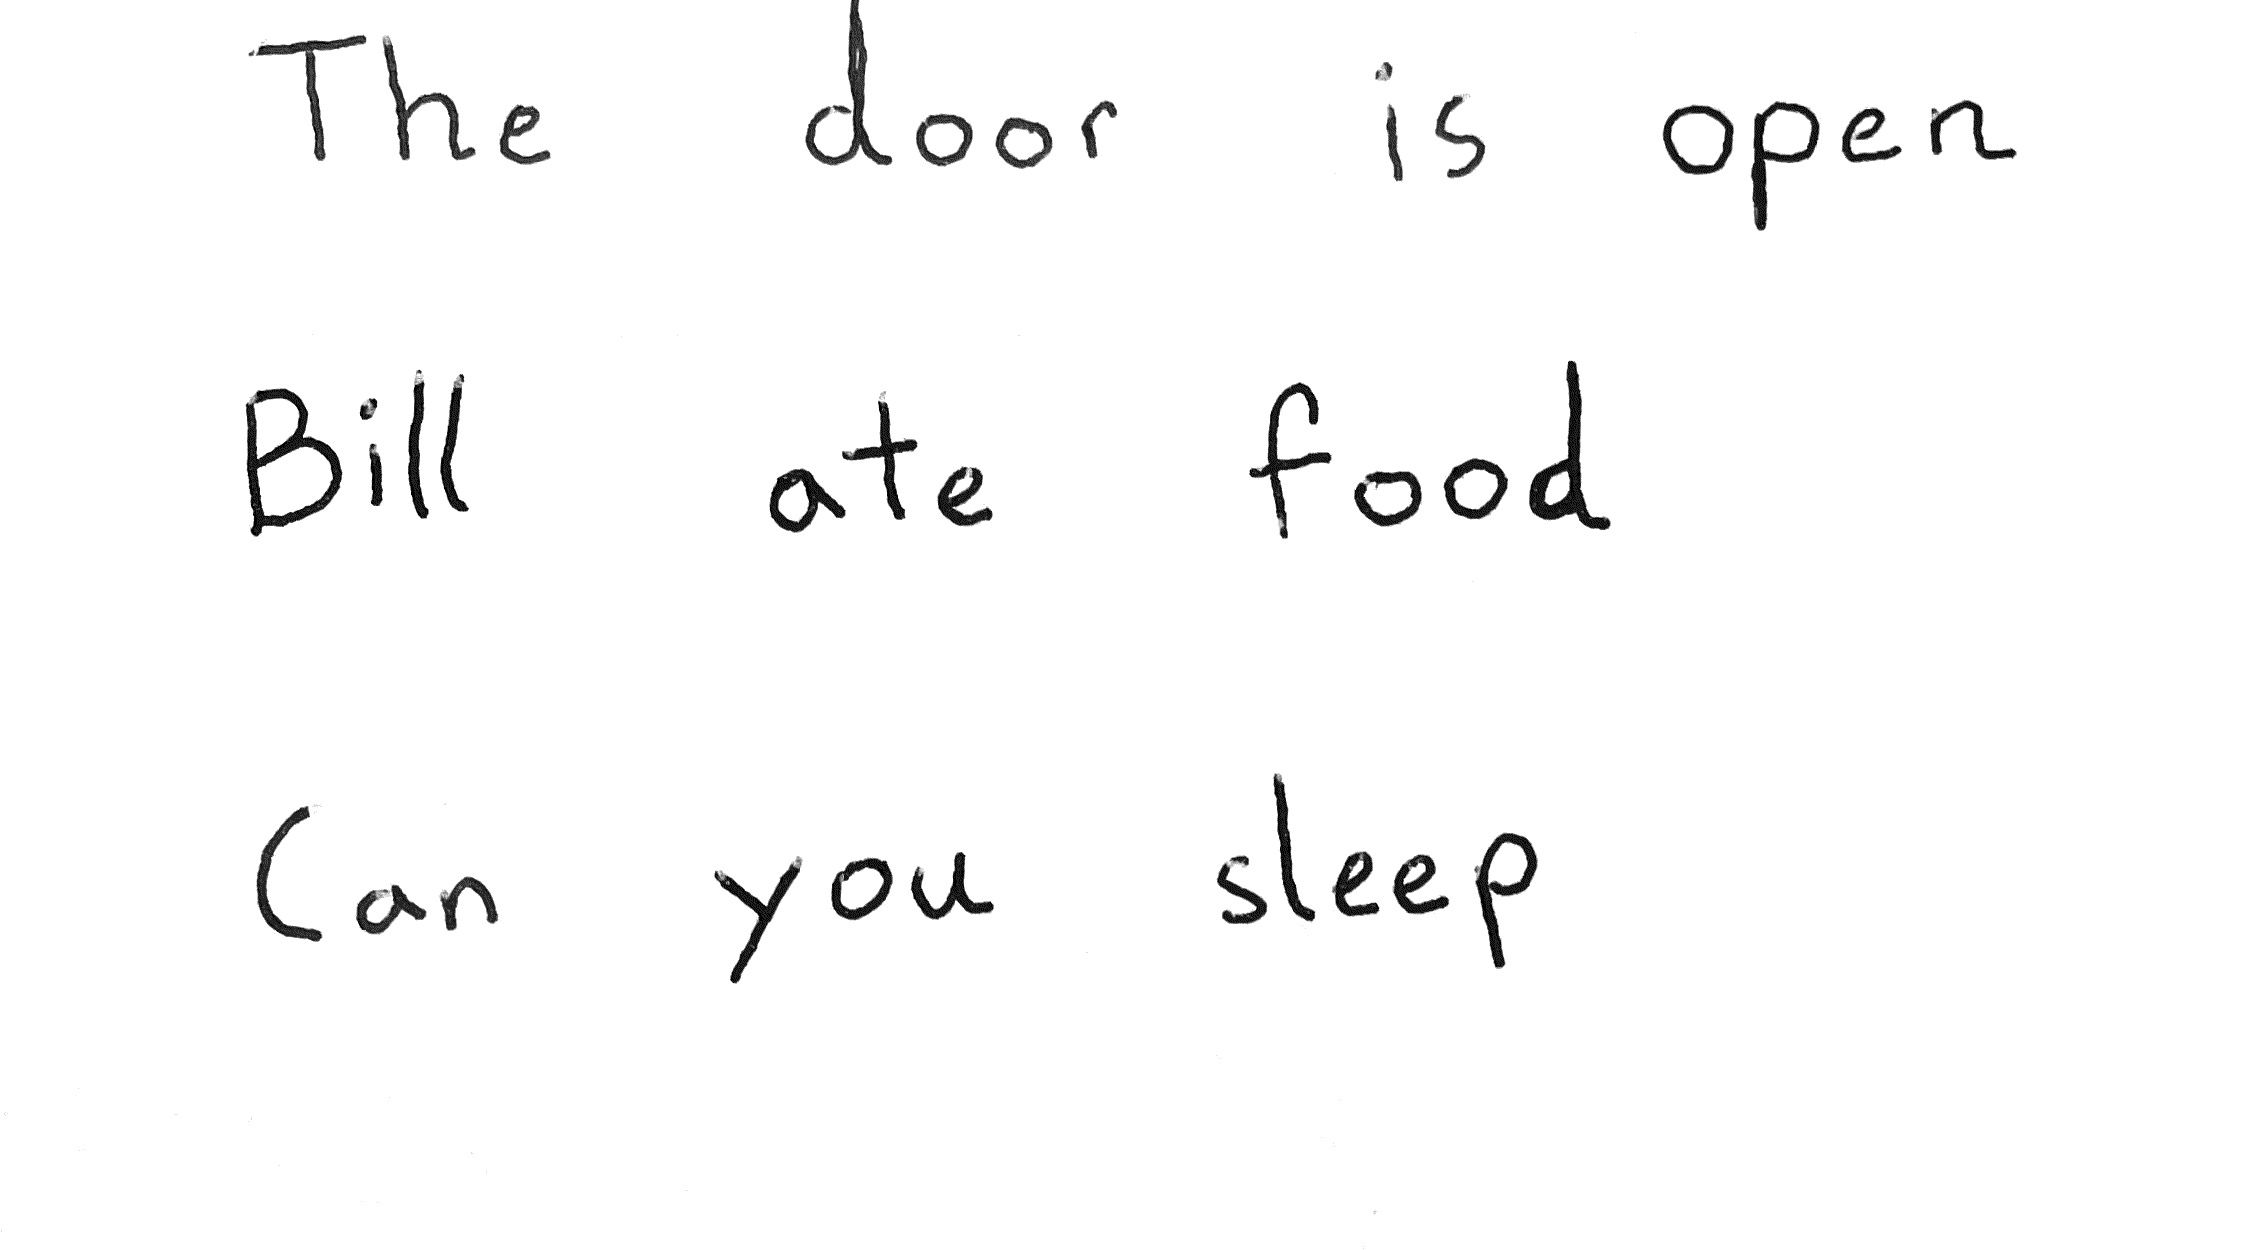 The door is open
Bill ate food
Can you sleep